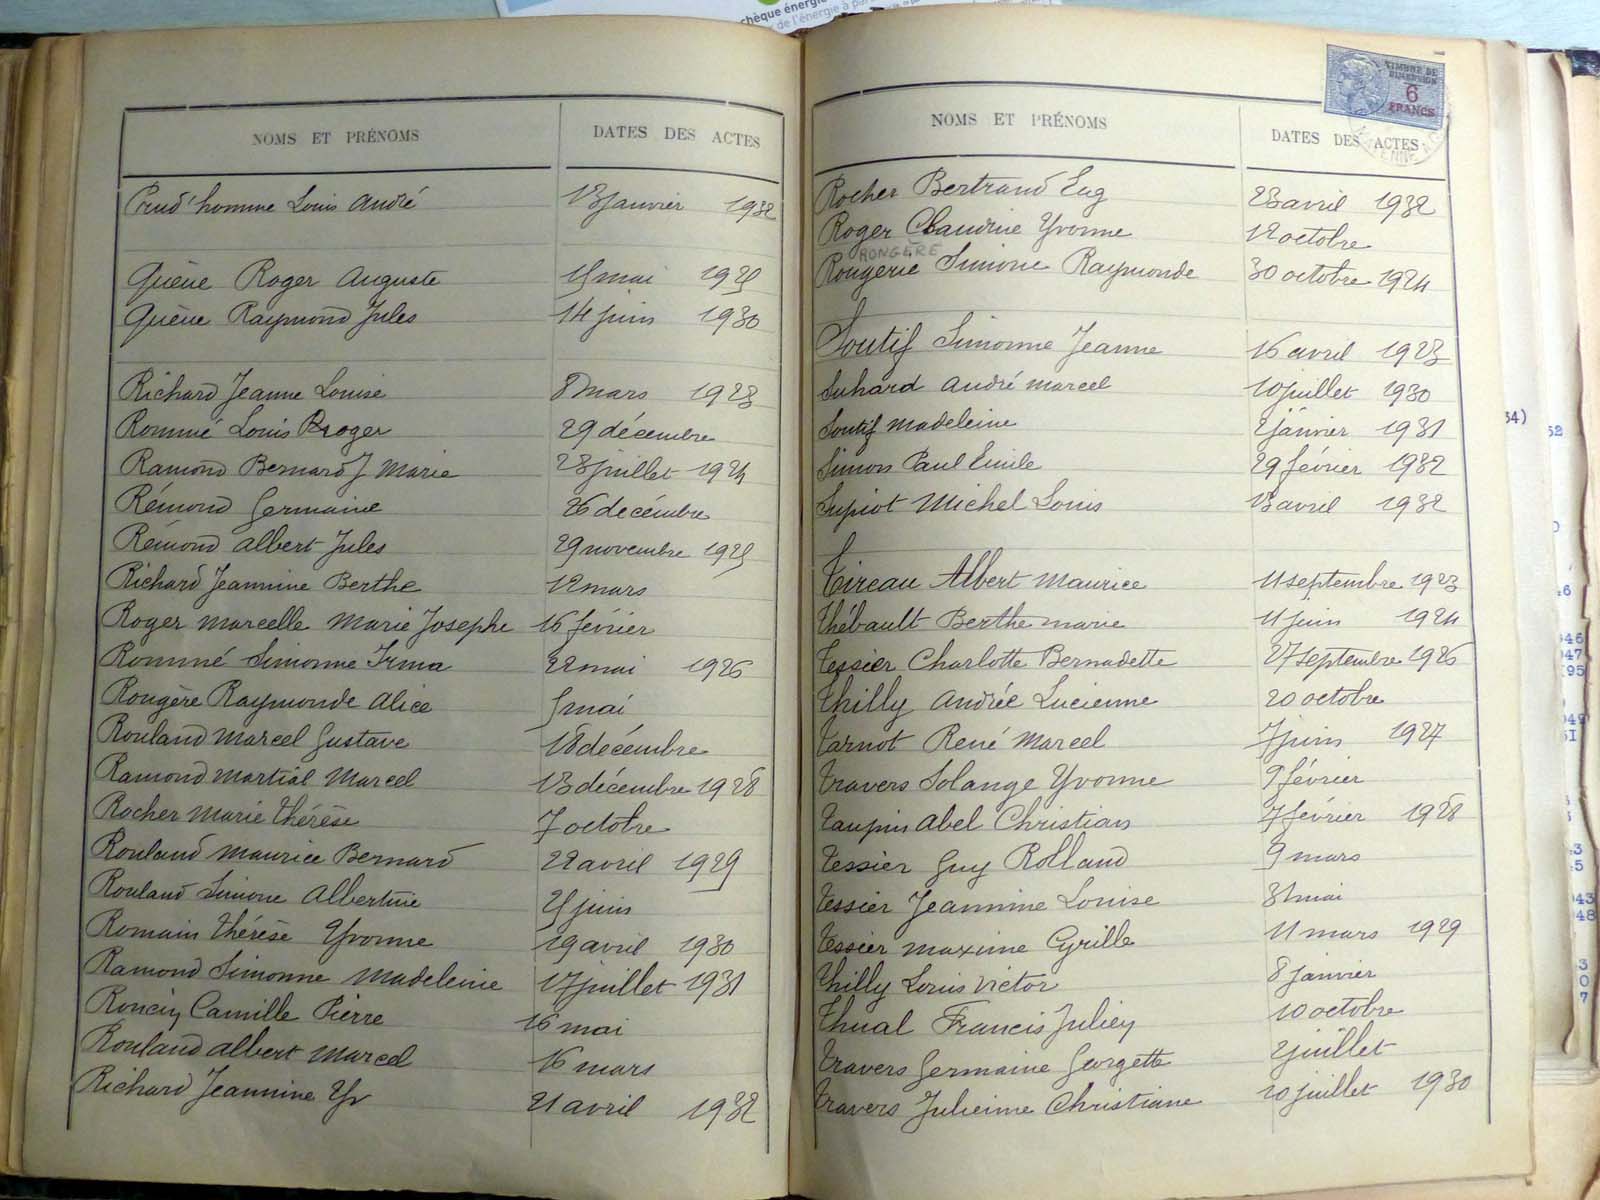 chèque énergie
de l'énergie à pa
NOMS ET PRÉNOMS DATES DES ACTES
Prud'homme Louis André 13 janvier 1932
Quène Roger Auguste 15 mai 1925
Quène Raymond Jules 14 juin 1930
Richard Jeanne Louise 8 mars 1923
Rommé Louis Roger 29 décembre
Ramond Bernard J Marie 28 juillet 1924
Rémond Germaine 26 décembre
Rémond Albert Jules 29 novembre 1925
Richard Jeannine Berthe 12 mars
Roger Marcelle Marie Josephe 16 février
Rommé Simonne Irma 22 mai 1926
Rougère Raymonde Alice 5 mai
Rouland Marcel Gustave 18 décembre
Ramond Martial Marcel 13 décembre 1928
Rocher Marie Thérèse 7 octobre
Rouland Maurice Bernard 22 avril 1929
Rouland Simone Albertine 25 juin
Romain Thérèse Yvonne 19 avril 1930
Ramond Simonne Madeleine 17 juillet 1931
Roncin Camille Pierre 16 mai
Rouland Albert Marcel 16 mars
Richard Jeannine Yv 21 avril 1932
TIMBRE DE
DIMENSION
6
FRANCS
NOMS ET PRÉNOMS DATES DES ACTES
Rocher Bertrand Eug 23 avril 1932
Roger Claudine Yvonne 12 octobre
RONGÈRE
Rougerie Simone Raymonde 30 octobre 1924
Soutif Simonne Jeanne 16 avril 1923
Suhard André Marcel 10 juillet 1930
Soutif Madeleine 2 janvier 1931
Simon Paul Emile 29 février 1932
Supiot Michel Louis 13 avril 1932
Tireau Albert Maurice 11 septembre 1923
Thébault Berthe Marie 11 juin 1924
Tessier Charlotte Bernadette 27 septembre 1926
Thilly Andrée Lucienne 20 octobre
Tarnot René Marcel 7 juin 1927
Travers Solange Yvonne 9 février
Taupin Abel Christian 7 février 1928
Tessier Guy Rolland 9 mars
Tessier Jeannine Louise 31 mai
Tessier Maxime Cyrille 11 mars 1929
Thilly Louis Victor 8 janvier
Thual Francis Julien 10 octobre
Travers Germaine Georgette 2 juillet
Travers Julienne Christiane 10 juillet 1930